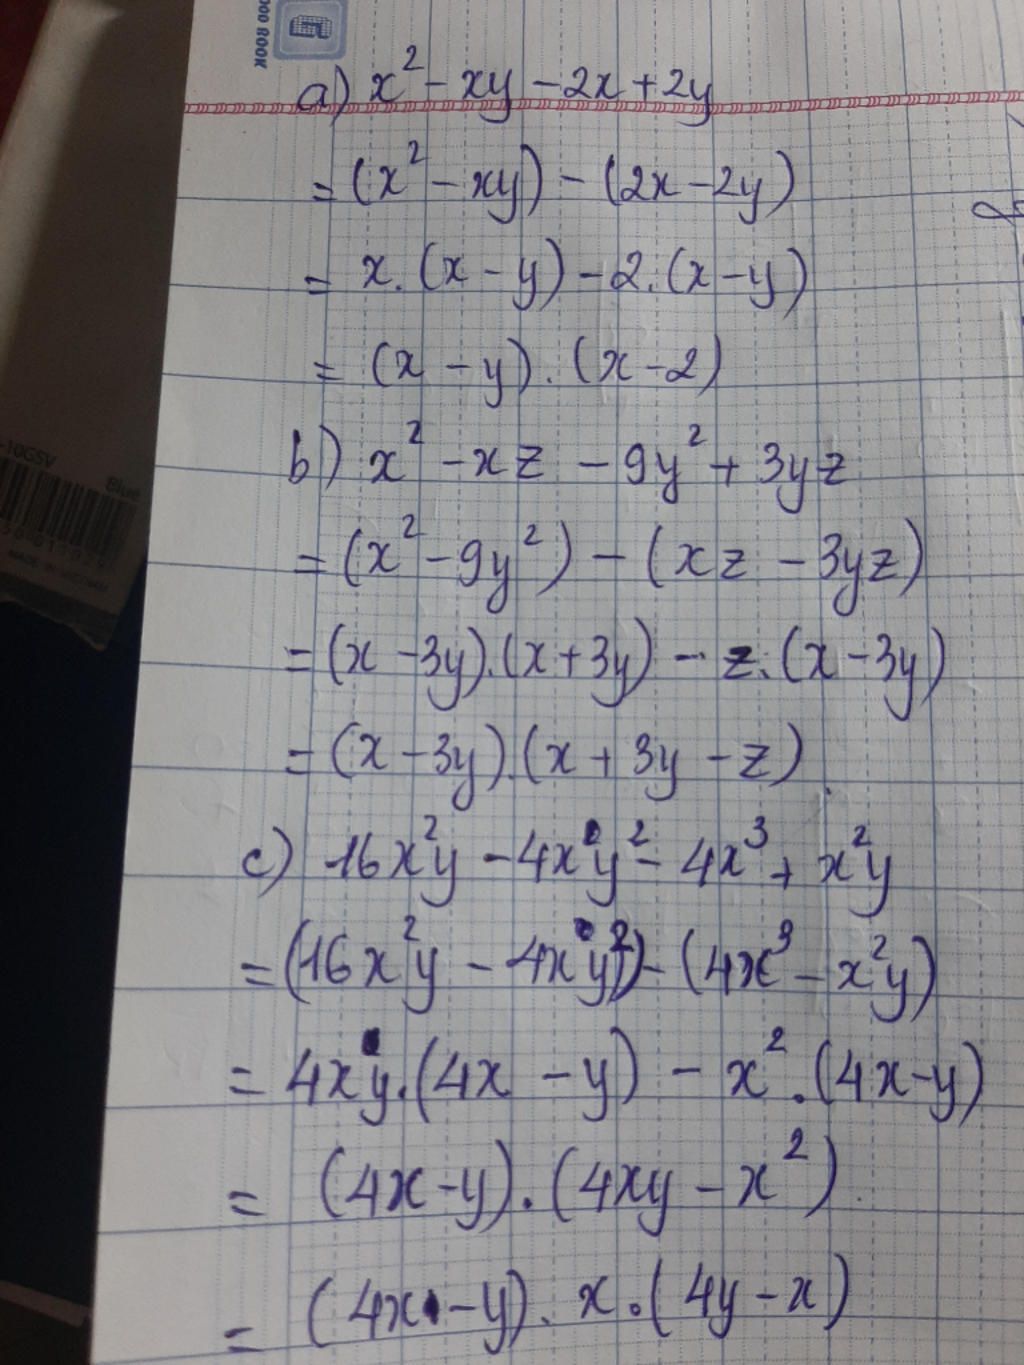 000 BOOK
a) x² - xy - 2x + 2y
= (x² - xy) - (2x - 2y)
= x.(x - y) - 2.(x - y)
= (x - y).(x - 2)
b) x² - xz - 9y² + 3yz
= (x² - 9y²) - (xz - 3yz)
= (x - 3y).(x + 3y) - z.(x - 3y)
= (x - 3y).(x + 3y - z)
c) 16x²y - 4xy² - 4x³ + x²y
= (16x²y - 4xy²) - (4x³ - x²y)
= 4xy.(4x - y) - x².(4x - y)
= (4x - y).(4xy - x²)
= (4x - y).x.(4y - x)
-10GSV
Blue